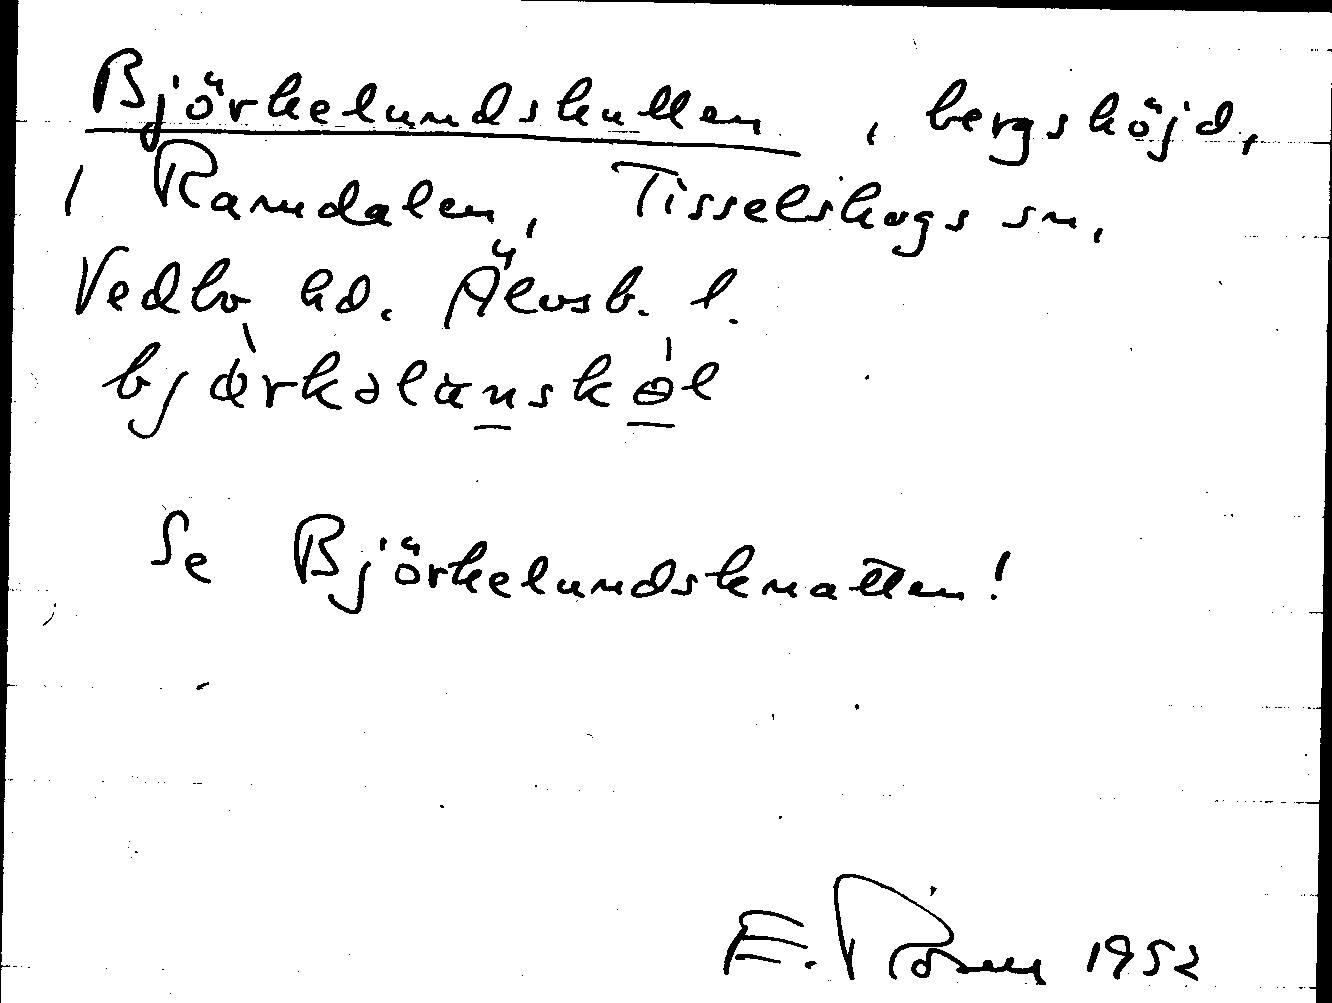 Björkelundskullen, bergshöjd,
i Ramdalen, Tisselskogs sn,
Vedbo hd. Älvsb. l.
Se Björkelundsknatten!
E. 1952